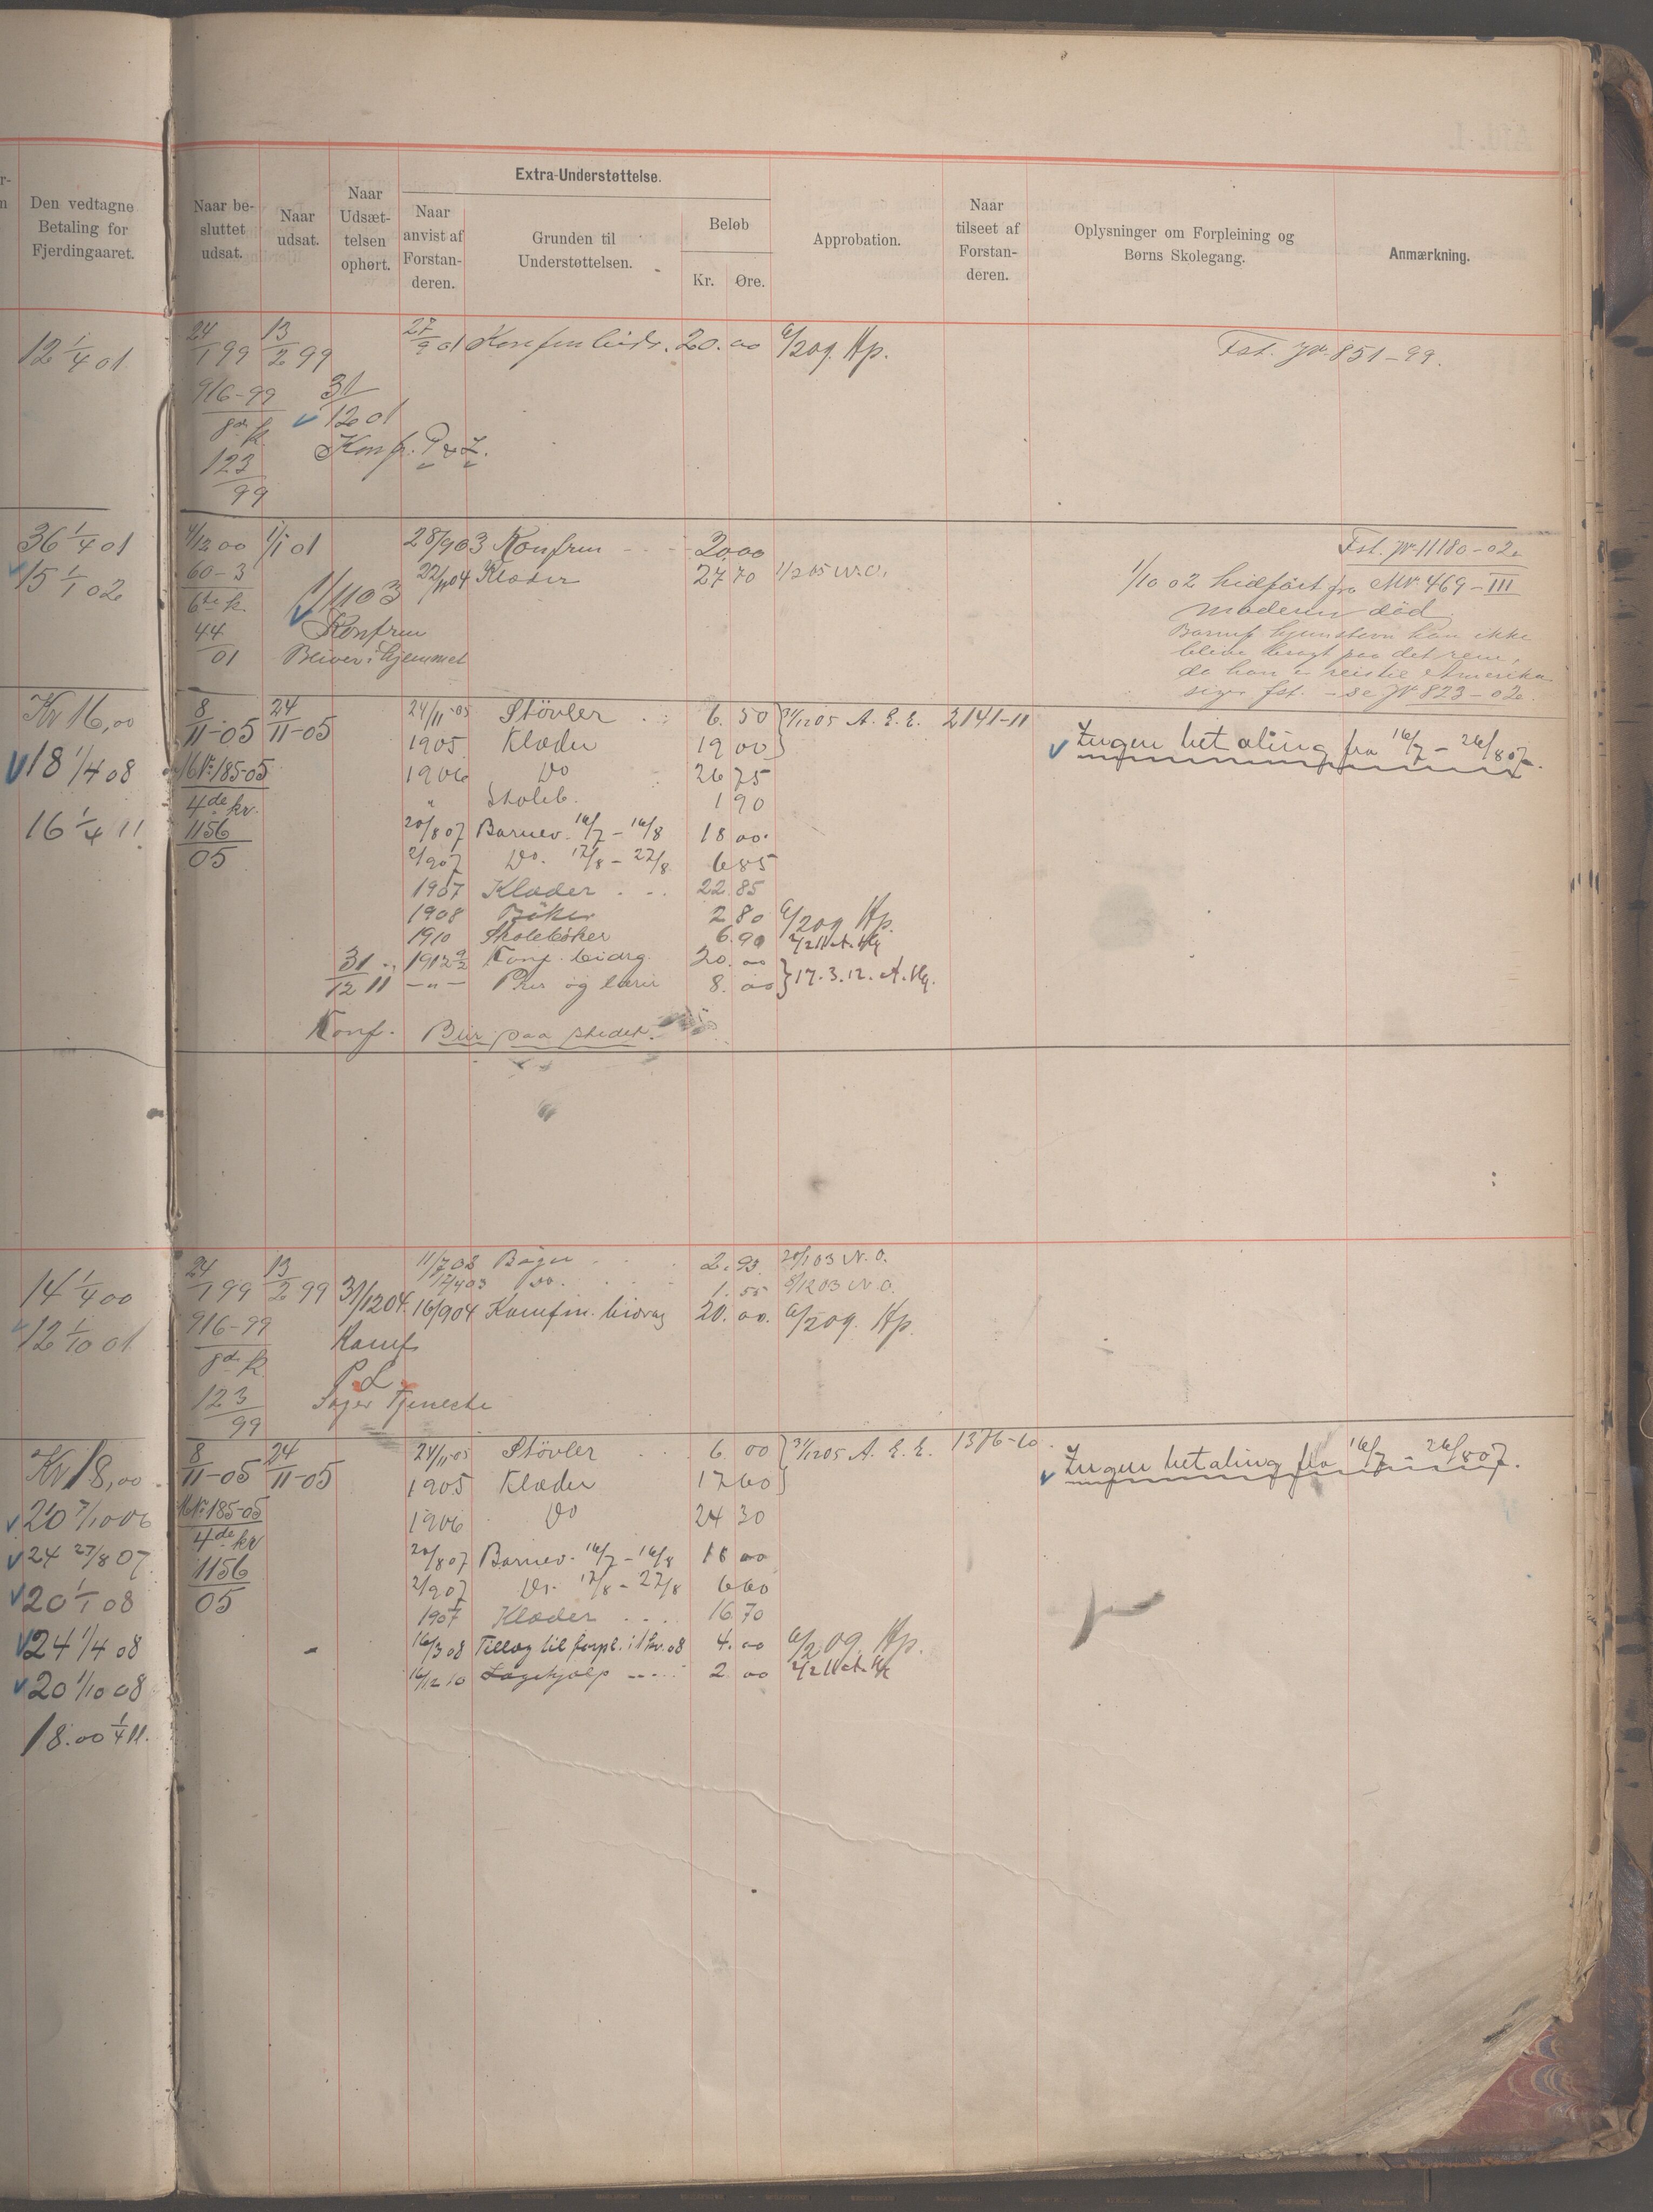 Den vedtagne Betaling for Fjerdingaaret.
Naar besluttet udsat.
Naar udsat.
Naar Udsættelsen ophørt.
Extra-Understøttelse.
Naar anvist af Forstanderen.
Grunden til Understøttelsen.
Beløb
Kr. Øre.
Approbation.
Naar tilseet af Forstanderen.
Oplysninger om Forpleining og Børns Skolegang.
Anmærkning.
12 1/4 01
24/1 99 13/2 99 27/9 01 20.00 6/2 09. Hp. Fst. 851-99.
916-99 31/12 01
123/99 Konfr.
36 1/4 01 4/12 00 1/1 01 28/9 03 Konfrm 20 00 Fst. Jr 11180-02
15 1/1 02 60-3 22/11 04 Klæder 27 70 1/2 05
1/10 02 hidført fra MN. 469-III
6te k. 1/1 03
Moderen død
44/01 Konfrm
Bliver i hjemmet
da han er reist til Amerika
siger fst. - se Jr 823-02
Kr 16,00 8/11-05 24/11-05 24/11-05 Støvler 6. 50 31/12 05 A. E. E. 2141-11 Ingen betaling fra 16/7 - 26/8 07.
1905 Klæder 19 00
18 1/4 08 185-05 1906 Do 26 75
4de kv. " Skoleb. 1 90
16 1/4 11. 1156/05 20/8 07 Barnev. 16/7 - 16/8 18 00
2/9 07 Do. 17/8 - 27/8 6 85
1907 Klæder 22 85
1908 Bøker 2 80 6/2 09 Hp.
1910 Skolebøker 6. 90
31/12 11 1912 Konf. bidrg. 20. 00 17. 3. 12. A. Hg.
-"- 8. 00
Konf. Blir paa stedet.
14 1/4 00 24/1 99 13/2 99 11/7 02 Bøger 2. 93 N. O.
31/12 04 Do. 1. 55 N. O.
12 1/10 01 916-99 16/9 04 Konfm. bidrag 20. 00. 6/2 09. Hp.
Konf.
P.L.
123/99 Søger Tjeneste
Kr 18,00 8/11-05 24/11-05 24/11-05 Støvler 6 00 31/12 05 A. E. E. 1376-10. Ingen betaling fra 16/7 - 26/8 07.
1905 Klæder 17 60
185-05 1906 Do 24 30
4de kv
24 27/8 07 1156/05 20/8 07 Barnev. 16/7 - 16/8 18 00
20 1/1 08 2/9 07 Do. 17/8 - 27/8 6 60
1907 Klæder 16 70
24 1/4 08 16/3 08 Tillæg til forpl. i 1 kv. 08 4. 00 6/2 09. Hp.
20 1/10 08 16/12 10 Lægehjælp 2 00
18.00 1/4 11.